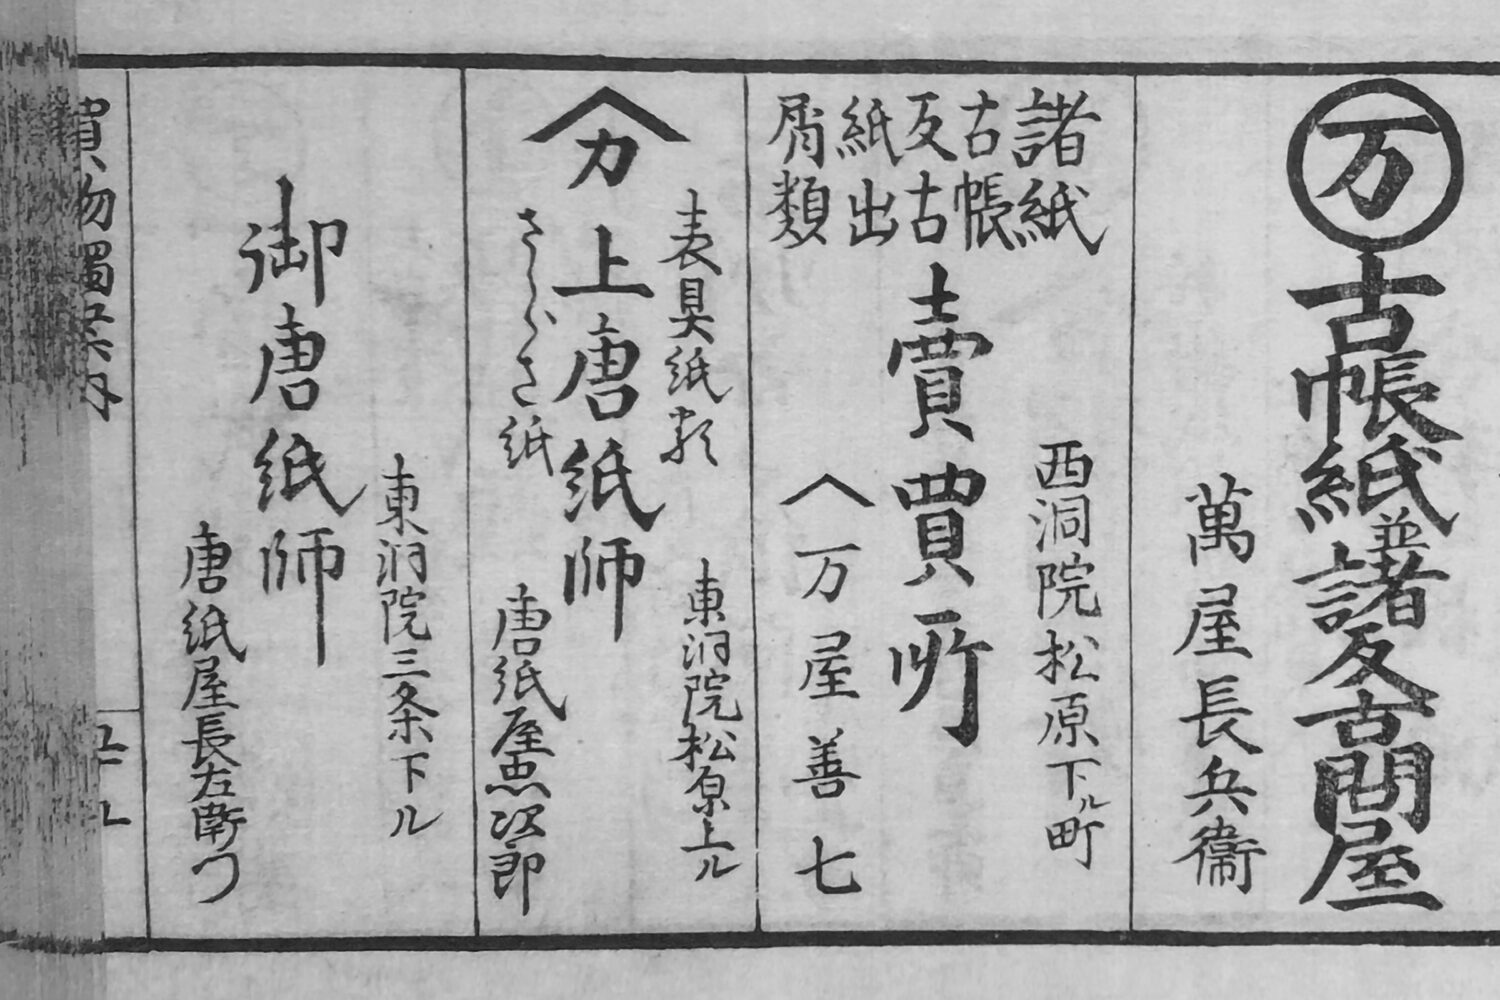 万
古帳紙並諸反古問屋
萬屋長兵衞
諸紙
古帳
反古
紙出
屑類
賣買所
西洞院松原下ル町
万屋善七
カ
上唐紙師
表具紙類
さらさ紙
東洞院松原上ル
唐紙屋忠次郎
御唐紙師
東洞院三条下ル
唐紙屋長左衛門
買物獨案内